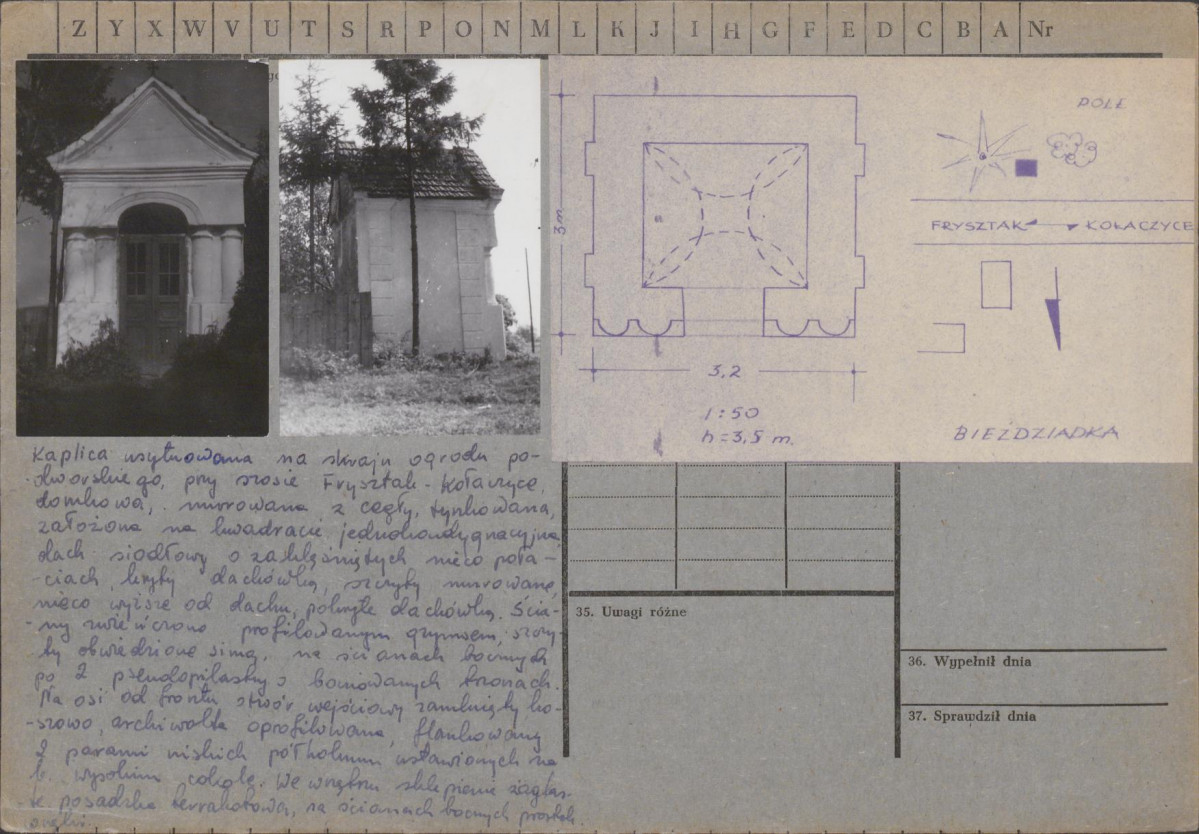 Z Y X W V U T S R P O N M L K J I H G F E D C B A Nr
POLE
FRYSZTAK KOŁACZYCE
3 m
3,2
1:50
h = 3,5 m.
BIEŹDZIADKA
Kaplica usytuowana na skraju ogrodu po-
dworskiego, przy szosie Frysztak - Kołaczyce,
domkowa, murowana z cegły, tynkowana,
założona na kwadracie jednokondygnacyjna
dach siodłowy o zaklęśniętych nieco poła-
-ciach kryty dachówką, szczyty murowane,
nieco wyższe od dachu, pokryte dachówką. Ścia-
-ny zwieńczone profilowanym gzymsem, szczy-
ty obwiedzione simą, na ścianach bocznych
po 2 pseudopilastry o boniowanych trzonach.
Na osi od frontu otwór wejściowy zamknięty ko-
-szowo, archiwolta oprofilowana, flankowany
2 parami niskich półkolumn ustawionych na
b. wysokim cokole. We wnętrzu sklepienie żaglas-
te posadzka terrakotowa, na ścianach bocznych prostok.
35. Uwagi różne
36. Wypełnił dnia
37. Sprawdził dnia